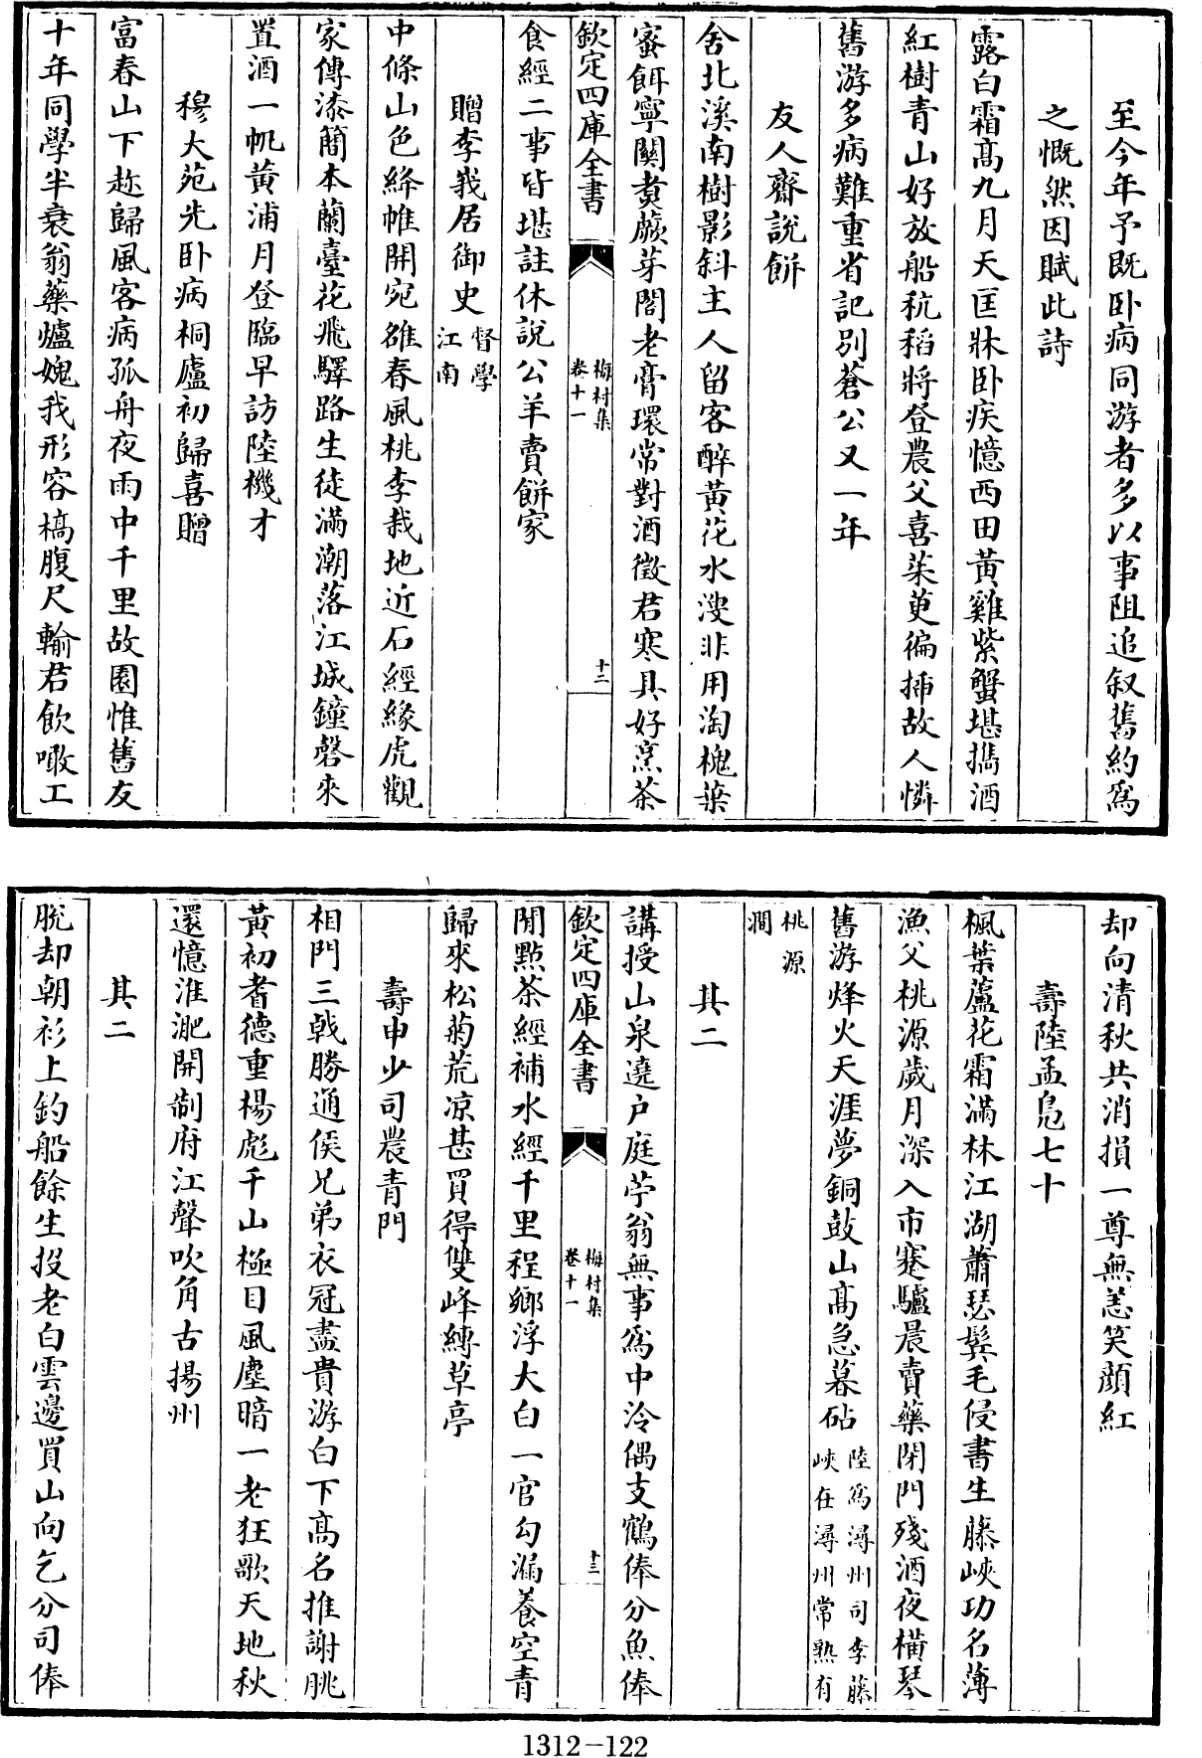 至今年予既卧病同游者多以事阻追叙舊約爲
之慨然因賦此詩
露白霜髙九月天匡牀卧疾憶西田黃雞紫蟹堪攜酒
紅樹青山好放船秔稻將登農父喜茱萸徧揷故人憐
舊游多病難重省記別蒼公又一年
友人齋說餅
舍北溪南樹影斜主人留客醉黃花水溲非用淘槐葉
蜜餌寧關煑蕨芽閣老膏環常對酒徵君寒具好烹茶
欽定四庫全書
梅村集
卷十一
十二
食經二事皆堪註休說公羊賣餅家
贈李羲居御史督學
江南
中條山色絳帷開宛雒春風桃李栽地近石經緣虎觀
家傳漆簡本蘭臺花飛驛路生徒滿潮落江城鐘磬來
置酒一帆黃浦月登臨早訪陸機才
穆大苑先卧病桐廬初歸喜贈
富春山下趂歸風客病孤舟夜雨中千里故園惟舊友
十年同學半衰翁藥爐媿我形容槁腹尺輸君飲噉工
却向清秋共消損一尊無恙笑顔紅
壽陸孟鳧七十
楓葉蘆花霜滿林江湖蕭瑟鬂毛侵書生藤峽功名薄
漁父桃源歲月深入市蹇驢晨賣藥閉門殘酒夜橫琴
舊游烽火天涯夢銅鼓山髙急暮砧陸爲潯州司李藤
峽在潯州常熟有
桃源
澗
其二
講授山泉遶户庭苧翁無事爲中泠偶支鶴俸分魚俸
閒點茶經補水經千里程鄉浮大白一官勾漏養空青
歸來松菊荒凉甚買得雙峰縳草亭
欽定四庫全書
梅村集
卷十一
十三
壽申少司農青門
相門三戟勝通侯兄弟衣冠盡貴游白下髙名推謝朓
黃初耆德重楊彪千山極目風塵暗一老狂歌天地秋
還憶淮淝開制府江聲吹角古揚州
其二
脫却朝衫上釣船餘生投老白雲邊買山向乞分司俸
1312-122